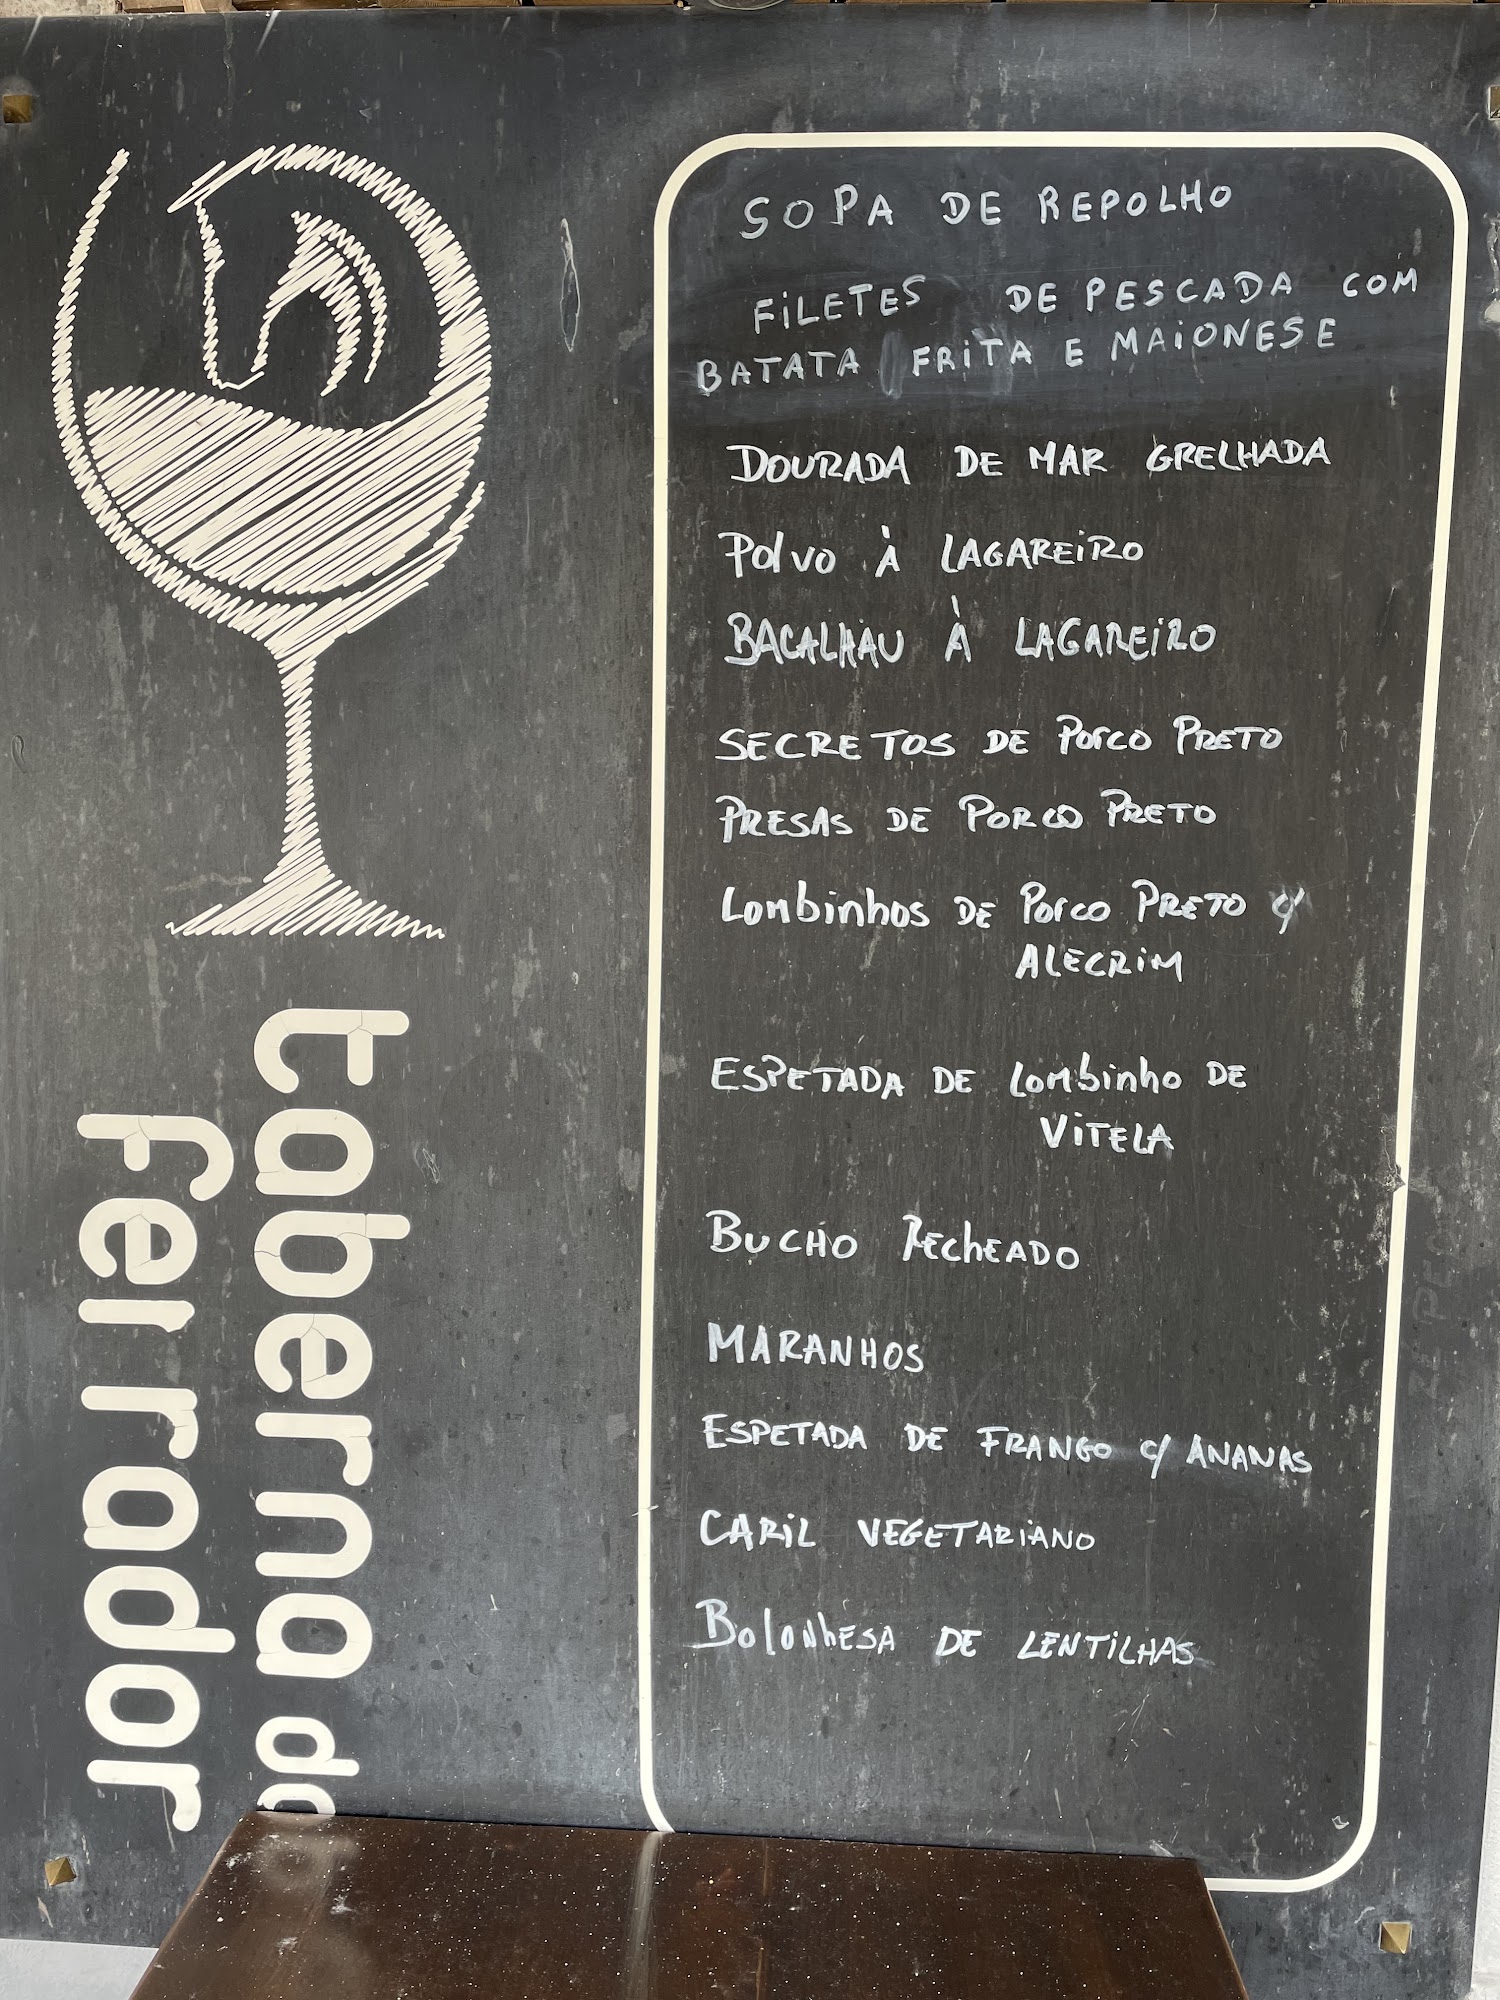 SOPA DE REPOLHO
FILETES DE PESCADA COM
BATATA FRITA E MAIONESE
DOURADA DE MAR GRELHADA
POLVO À LAGAREIRO
BACALHAU À LAGAREIRO
SECRETOS DE PORCO PRETO
PRESAS DE PORCO PRETO
LOMBINHOS DE PORCO PRETO C/
ALECRIM
ESPETADA DE LOMBINHO DE
VITELA
BUCHO RECHEADO
MARANHOS
ESPETADA DE FRANGO C/ ANANAS
CARIL VEGETARIANO
BOLONHESA DE LENTILHAS
taberna do
ferrador